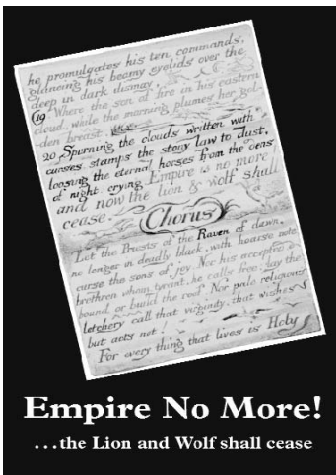 he promulgates his ten commands,
glancing his beamy eyelids over the
deep in dark dismay,
19 Where the son of fire in his eastern
cloud, while the morning plumes her gol-
den breast,
20 Spurning the clouds written with
curses, stamps the stony law to dust,
loosing the eternal horses from the dens
of night, crying Empire is no more
and now the lion & wolf shall
cease.
Chorus
Let the Priests of the Raven of dawn,
no longer in deadly black, with hoarse note
curse the sons of joy. Nor his accepted
brethren whom, tyrant, he calls free: lay the
bound, or build the roof. Nor pale religious
letchery call that virginity, that wishes
but acts not!
For every thing that lives is Holy
Empire No More!
...the Lion and Wolf shall cease